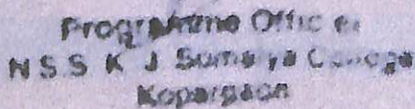 Programme Officer
N S S K J Somaiya College
Kopargaon